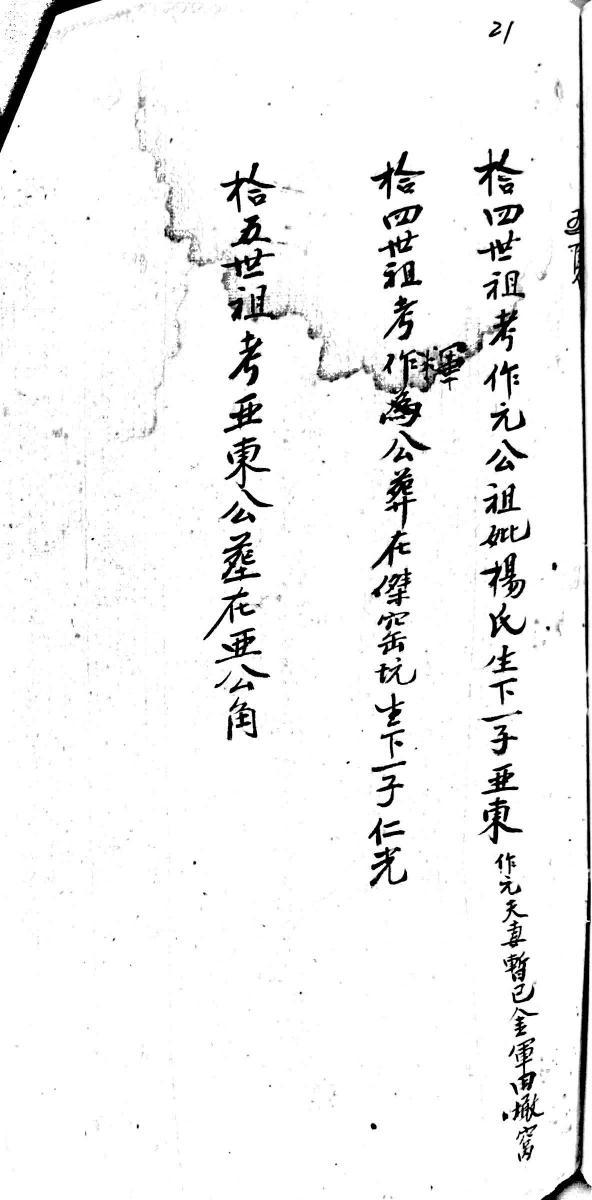 21
拾四世祖考作元公祖妣楊氏生下一子亜東作元夫妻暫已金軍田墩窩
拾四世祖考作為公葬在傑窑坑生下一子仁光
輝
拾五世祖考亜東公葬在亜公角